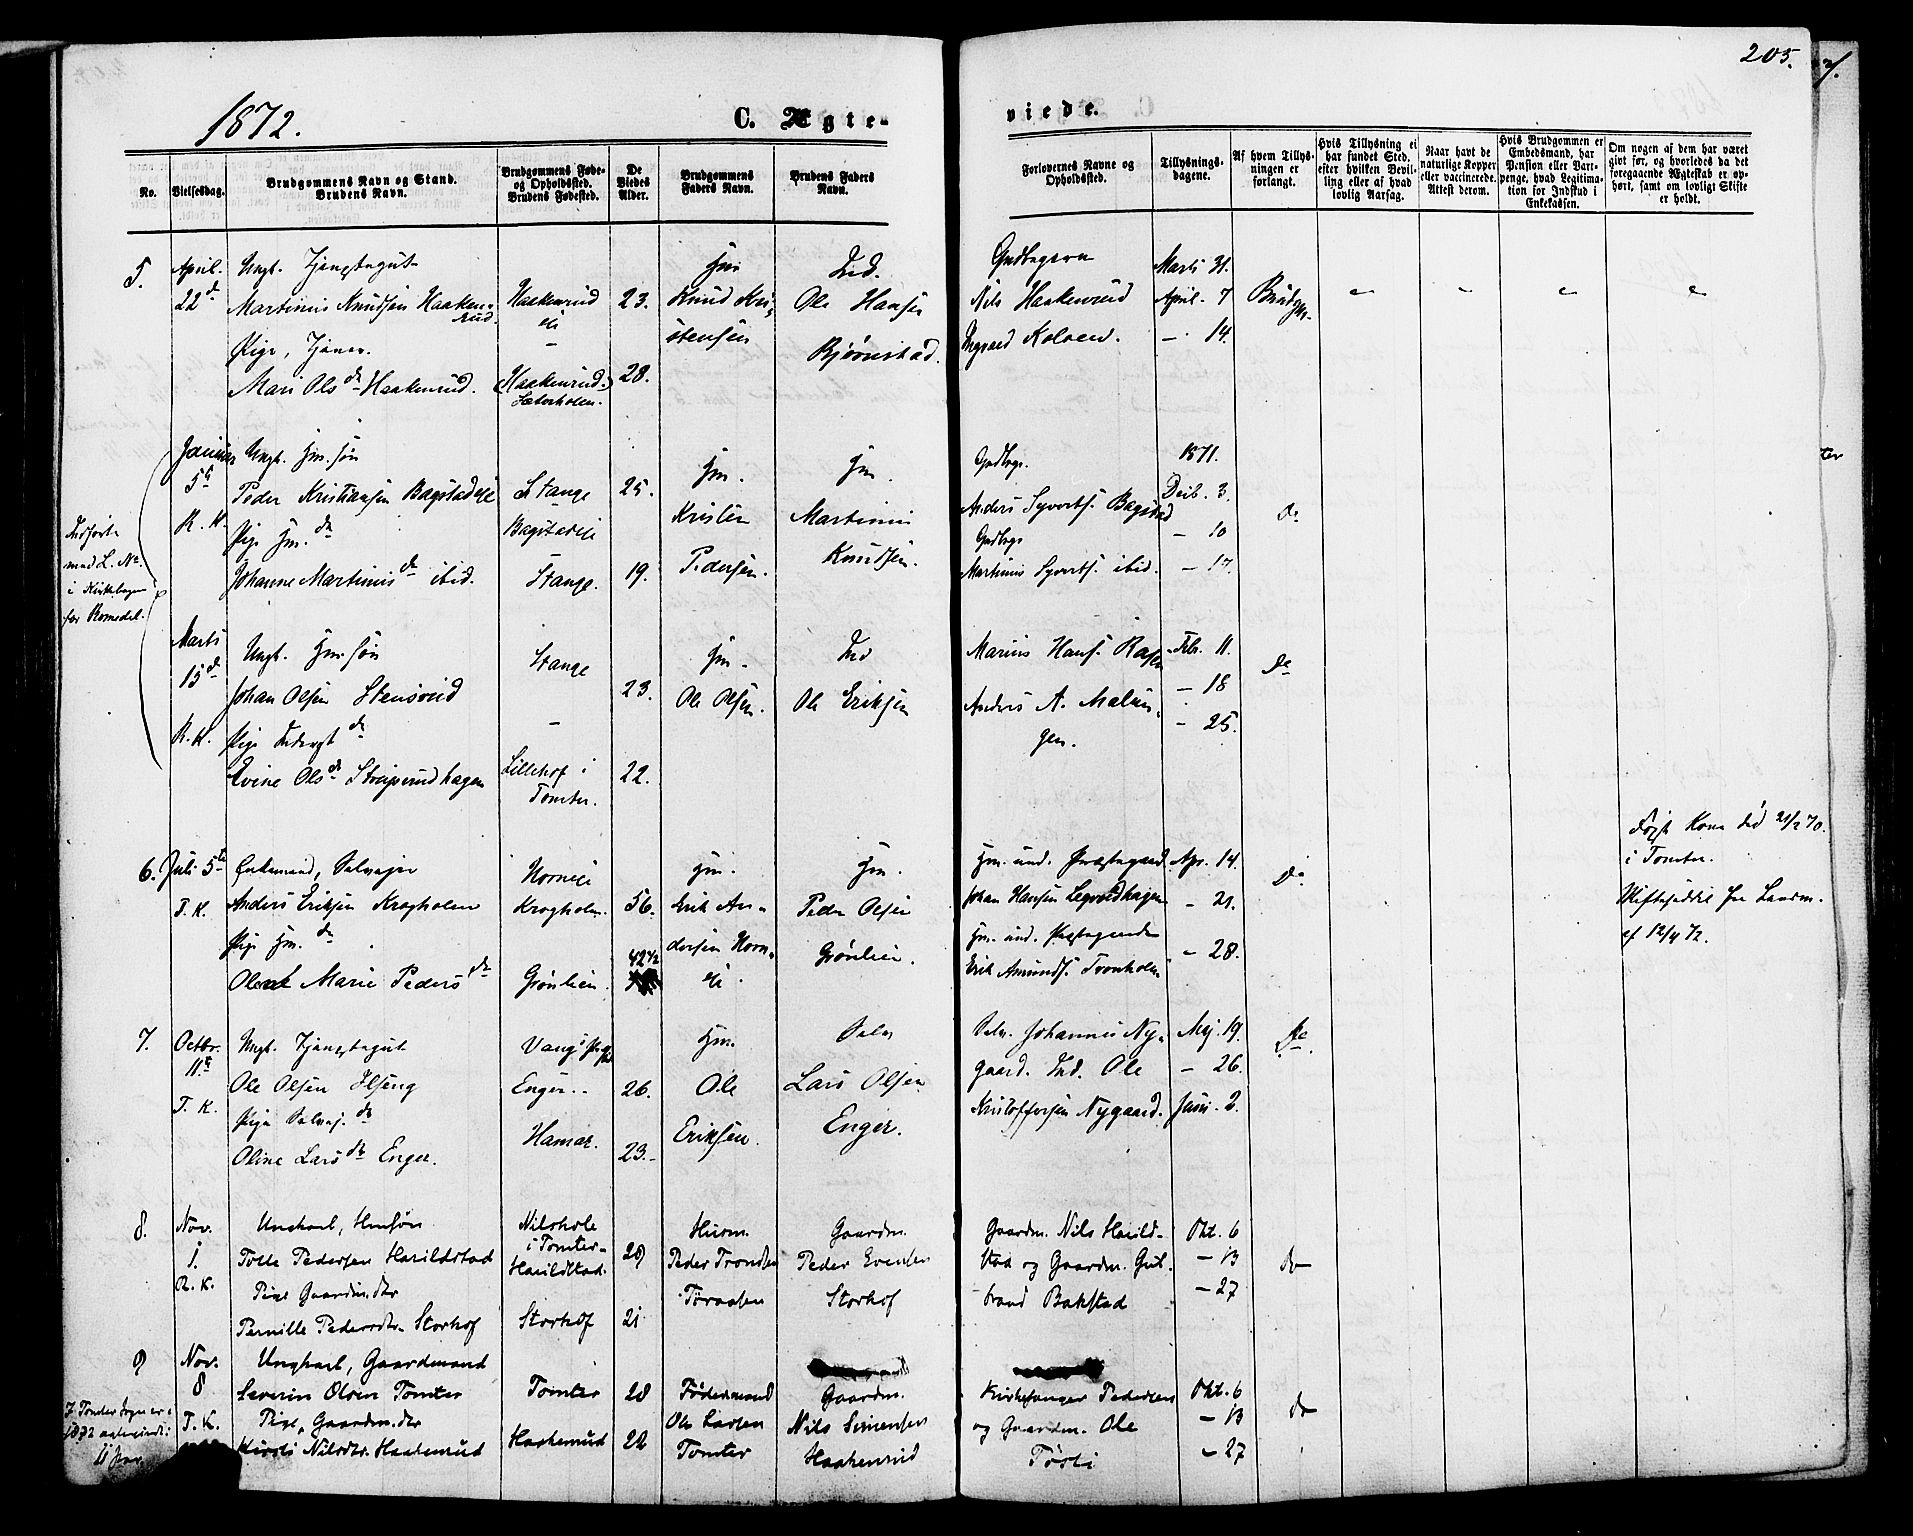 205.
1872.
C. Ægte-
viede.
No.
Vielsesdag.
Brudgommens Navn og Stand.
Brudens Navn.
Brudgommens Føde-
og Opholdssted.
Brudens Fødested.
De
Viedes
Alder.
Brudgommens
Faders Navn.
Brudens Faders
Navn.
Forlovernes Navne og
Opholdssted.
Tillysnings-
dagene.
Af hvem Tillys-
ningen er
forlangt.
Hvis Tillysning ei
har fundet Sted,
efter hvilken Bevil-
ling eller af hvad
lovlig Aarsag.
Naar havt de
naturlige Kopper
eller vaccinerede.
Attest derom.
Hvis Brudgommen er
Embedsmand, har
Pension eller Vart-
penge, hvad Legitima-
tion for Indskud i
Enkekassen.
Om nogen af dem har været
gift før, og hvorledes da det
foregaaende Ægteskab er op-
hørt, samt om lovligt Skifte
er holdt.
5.
April.
22d
Ungk. Tjenestegut
Martinus Knudsen Haaken-
rud.
Pige, Tjener.
Mari Olsdr Haakenrud.
Haakenrud
eie
Haakenrud
Sæterholen.
23.
28.
Hm
Knud Kri-
stensen
Ind.
Ole Hansen
Bjørnstad.
Gudbrgere
Nils Haakenrud
Kolsen.
Marts 31.
April. 7
— 14.
Brudgm.
Januar
5te
R. K.
Ungk. Hm. søn
Peder Kristiansen Bagstadeie
Pige Hm. dr
Johanne Martinusdr ibid.
Stange
Bagstadeie
Stange.
25.
19.
Hm.
Kristen
Pedersen.
Hm.
Martinus
Knudsen.
Gudbrgr.
Anders Syverts. Bagstad
Gudbrgr
Martinus Syverts. ibid.
1871.
Decb. 3.
— 10
— 17.
Do
Indførte
med L. No.
i Kirkebogen
for Romedal.
Marts
15de
R. K.
Ungk. Hm. søn
Johan Olsen Stensrud
Pige Inderst dr
Evine Olsdr Streiperudhagen
Stange
Lillehof i
Tomter.
23.
22.
Hm.
Ole Olsen.
Ind
Ole Eriksen
Marius Hans.
Anders A. Malun-
gen.
Febr. 11.
— 18
— 25.
Do
6.
Juli 5te
T. K.
Enkemand, Selveier
Anders Eriksen Krogholen
Pige Hm. dr
Marie Pedersdr
Horneie
Krogholen.
Grønlien.
56.
42 1/2
Hm.
Erik An-
dersen Horn-
eie.
Hm.
Peder Olsen
Grønlien.
Hm. und. Præstegaard.
Johan Hansen Legvoldhagen
Hm. und. Præstegaarden
Erik Amunds. Tronholen
Apr. 14.
— 21.
— 28.
Do
Forst Kone død 21/2 70.
i Tomter.
Skifteseddel fra Lensm.
af 12/4 72.
7.
Octbr.
11te
T. K.
Ungk. Tjenestegut
Ole Olsen Ilseng
Pige Selvei. dr
Oline Larsdr Enger.
Vangs
Enger.
Hamar.
26.
23.
Hm.
Ole
Eriksen.
Selv
Lars Olsen
Enger.
Selv. Johannes Ny-
gaard. Ind. Ole
Kristoffersen Nygaard.
Maj. 19.
— 26.
Juni. 2.
Do
8.
Nov.
1.
R. K.
Ungkarl, Hmsøn
Tolle Pedersen Harildstad
Pige Gaardm. dtr
Pernille Pedersdtr. Storhof
Nilshole
i Tomter
Harildstad.
Storhof
29
21
Husm.
Peder Trondsen
Toraasen
Gaardm.
Peder Evensen
Storhof
Gaardm. Nils Harild-
stad og Gaardm. Gul-
brand Bakstad
Okt. 6
— 13
— 27
do
9
Nov.
8
T. K.
Ungkarl, Gaardmand
Severin Olsen Tomter
Pige, Gaardm. dtr
Kirsti Nilsdtr. Haakenrud
Tomter
Haakenrud
28
22
Føderaamand
Ole Larsen
Tomter
Gaardm.
Nils Simensen
Haakenrud
Kirkesanger Pedersen
og Gaardm. Ole
Tørli
Okt. 6
— 13
— 27
do
I Tomter Sogn er i
1872
11 Par